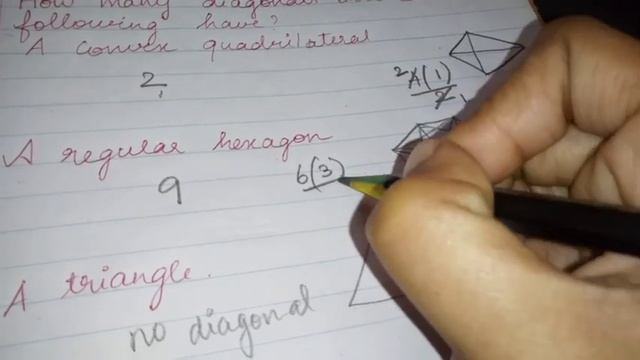 How many diagonals
following have?
A convex quadrilateral
2
2 4(1)
2 1
A regular hexagon
9
6(3)
A triangle.
no diagonal